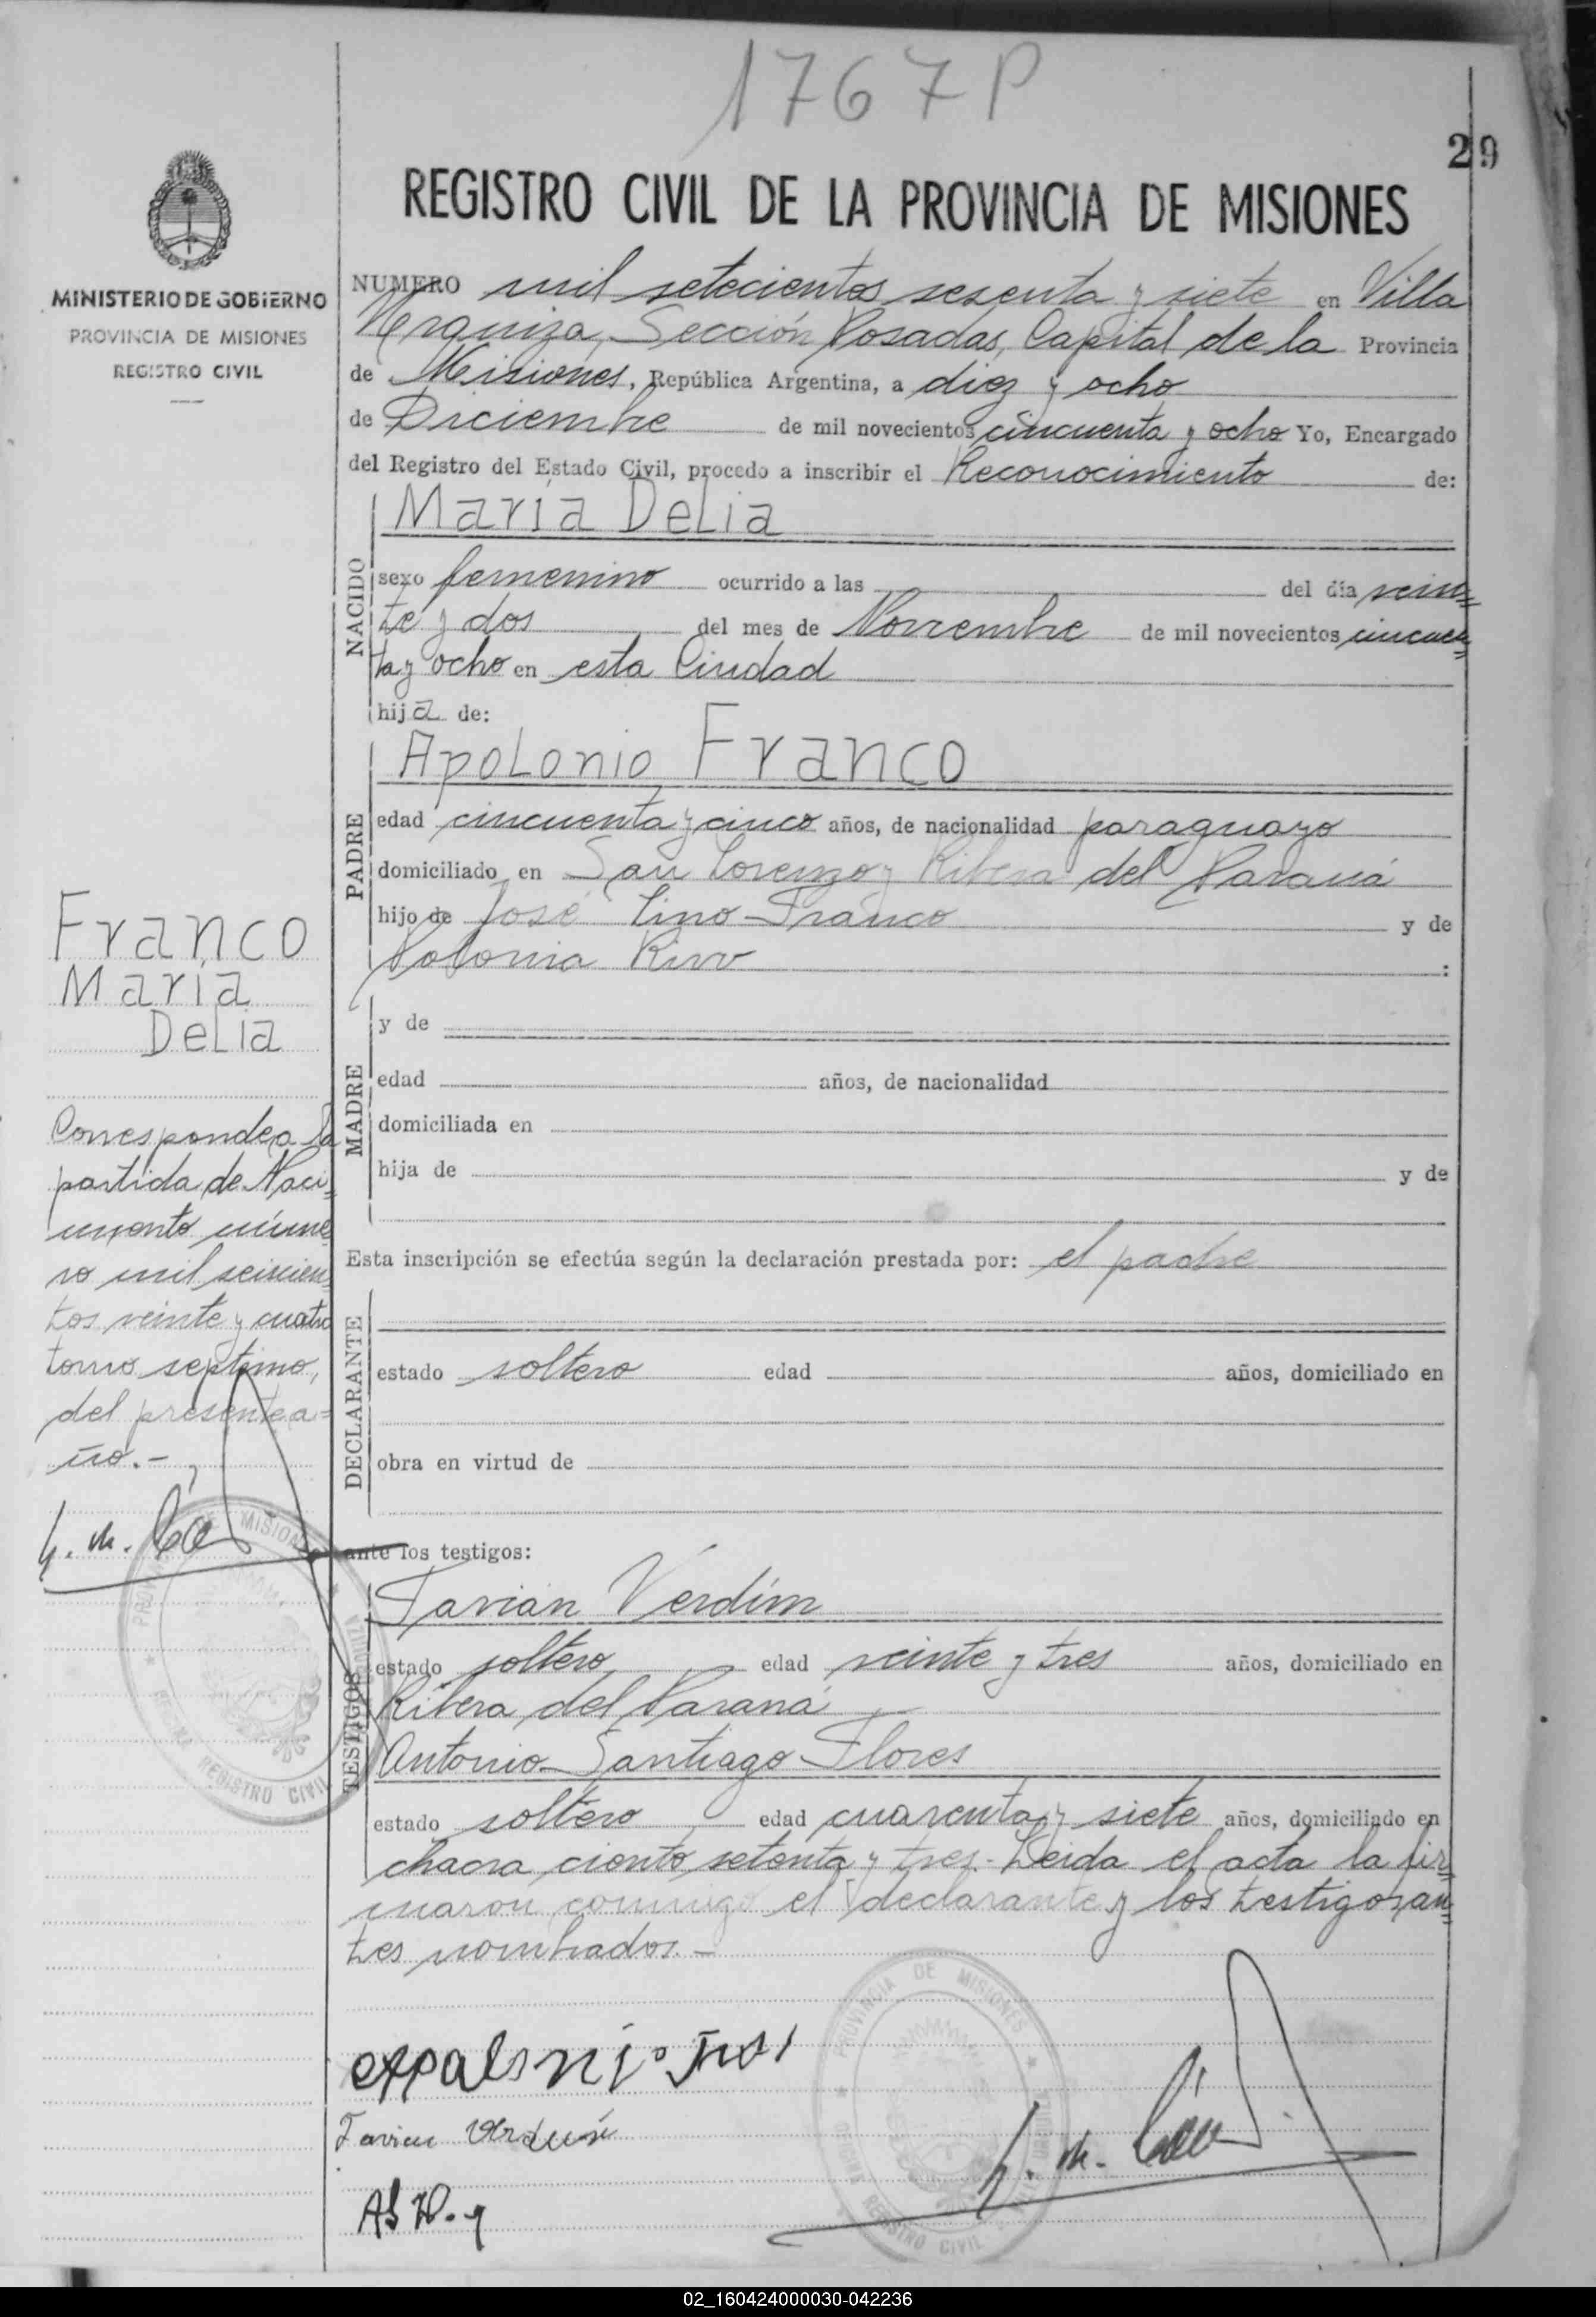 1767 P
29
REGISTRO CIVIL DE LA PROVINCIA DE MISIONES
MINISTERIO DE GOBIERNO
PROVINCIA DE MISIONES
REGISTRO CIVIL
NUMERO mil setecientos sesenta y siete en Villa
Urquiza, Sección Posadas, Capital de la Provincia
de Misiones, República Argentina, a diez y ocho
de Diciembre de mil novecientos cincuenta y ocho Yo, Encargado
del Registro del Estado Civil, procedo a inscribir el Reconocimiento de:
NACIDO
María Delia
sexo femenino ocurrido a las del día vein=
te y dos del mes de Noviembre de mil novecientos cincuen=
ta y ocho en esta Ciudad
hija de:
PADRE
Apolonio Franco
edad cincuenta y cinco años, de nacionalidad paraguayo
domiciliado en San Lorenzo y Ribera del Paraná
hijo de José Lino Franco y de
Polonia :
MADRE
y de
edad años, de nacionalidad
domiciliada en
hija de y de
Esta inscripción se efectúa según la declaración prestada por: el padre
DECLARANTE
estado soltero edad años, domiciliado en
obra en virtud de
ante los testigos:
TESTIGOS
Favián Verdún
estado soltero edad veinte y tres años, domiciliado en
Ribera del Paraná
Antonio Santiago Flores
estado soltero edad cuarenta y siete años, domiciliado en
chacra ciento setenta y tres.- Leida el acta la fir=
maron conmigo el declarante y los testigos an=
tes nombrados.-
Franco
María
Delia
Corresponde a la
partida de Naci=
miento núme
ro mil seiscien=
tos veinte y cuatro
tomo septimo,
del presente a=
ño.-
PROVINCIA DE MISIONES
REGISTRO CIVIL
PROVINCIA DE MISIONES
REGISTRO CIVIL
02_160424000030-042236